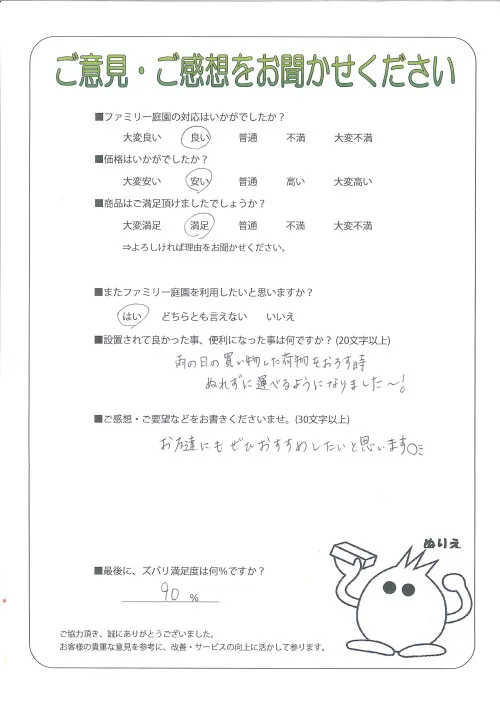 ご意見・ご感想をお聞かせください
■ファミリー庭園の対応はいかがでしたか？
大変良い 良い 普通 不満 大変不満
■価格はいかがでしたか？
大変安い 安い 普通 高い 大変高い
■商品はご満足頂けましたでしょうか？
大変満足 満足 普通 不満 大変不満
⇒よろしければ理由をお聞かせください。
■またファミリー庭園を利用したいと思いますか？
はい どちらとも言えない いいえ
■設置されて良かった事、便利になった事は何ですか？(20文字以上)
雨の日の買い物した荷物をおろす時
ぬれずに運べるようになりました〜！
■ご感想・ご要望などをお書きくださいませ。(30文字以上)
お友達にもぜひおすすめしたいと思います
ぬりえ
■最後に、ズバリ満足度は何％ですか？
90 %
ご協力頂き、誠にありがとうございました。
お客様の貴重な意見を参考に、改善・サービスの向上に活かして参ります。